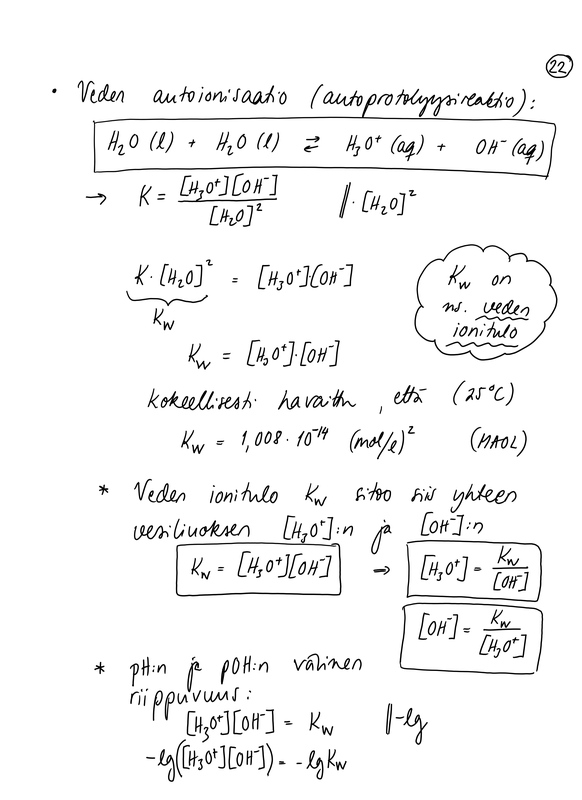 22
• Veden autoionisaatio (autoprotolyysireaktio):
H₂O (l) + H₂O (l) ⇄ H₃O⁺ (aq) + OH⁻ (aq)
→ K = [H₃O⁺][OH⁻] / [H₂O]² ‖ · [H₂O]²
K · [H₂O]² = [H₃O⁺]·[OH⁻]
K_W
K_W on
ns. veden
ionitulo
K_W = [H₃O⁺]·[OH⁻]
kokeellisesti havaittu, että (25°C)
K_W = 1,008 · 10⁻¹⁴ (mol/l)² (MAOL)
* Veden ionitulo K_W sitoo siis yhteen
vesiliuoksen [H₃O⁺]:n ja [OH⁻]:n
K_W = [H₃O⁺][OH⁻] → [H₃O⁺] = K_W / [OH⁻]
[OH⁻] = K_W / [H₃O⁺]
* pH:n ja pOH:n välinen
riippuvuus:
[H₃O⁺][OH⁻] = K_W ‖ -lg
-lg([H₃O⁺][OH⁻]) = -lg K_W